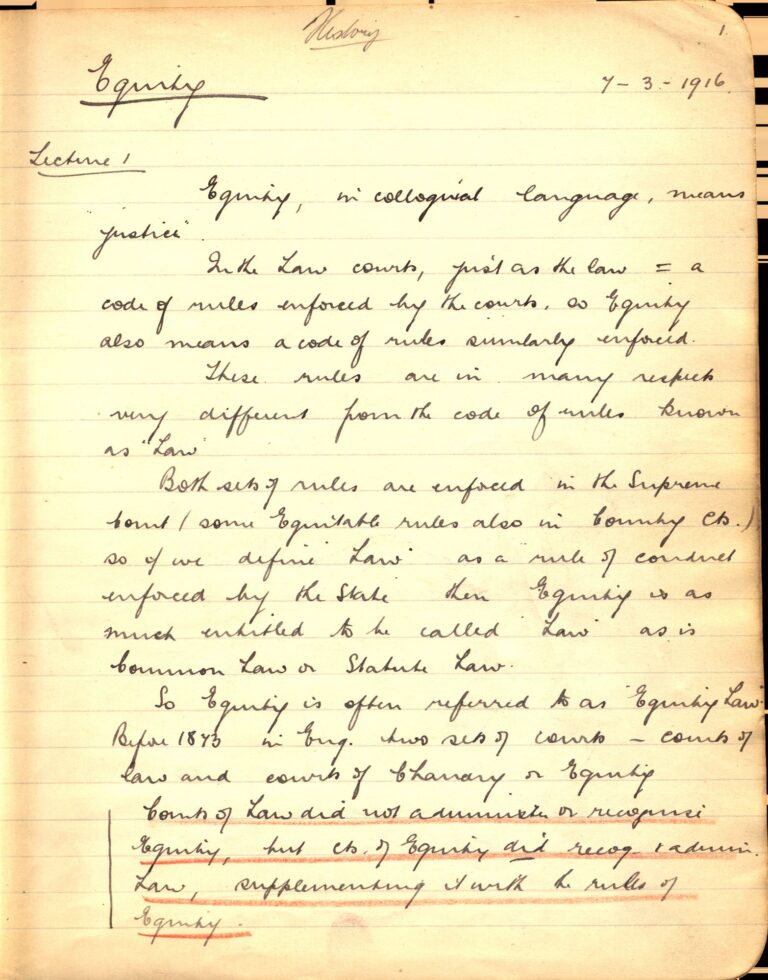 History
1.
Equity
7 - 3 - 1916.
Lecture 1
Equity, in colloquial language, means
"justice".
In the Law courts, just as the law = a
code of rules enforced by the courts, so Equity
also means a code of rules similarly enforced.
These rules are in many respects
very different from the code of rules known
as "Law"
Both sets of rules are enforced in the Supreme
Court (some Equitable rules also in Country Cts.)
so if we define "Law" as a "rule of conduct
enforced by the State" then Equity is as
much entitled to be called "Law" as is
Common Law or Statute Law.
So Equity is often referred to as "Equity Law"
Before 1873 in Eng. two sets of courts - courts of
law and courts of Chancery or Equity
Courts of Law did not administer or recognise
Equity, but cts. of Equity did recog. & admin.
Law, supplementing it with the rules of
Equity.